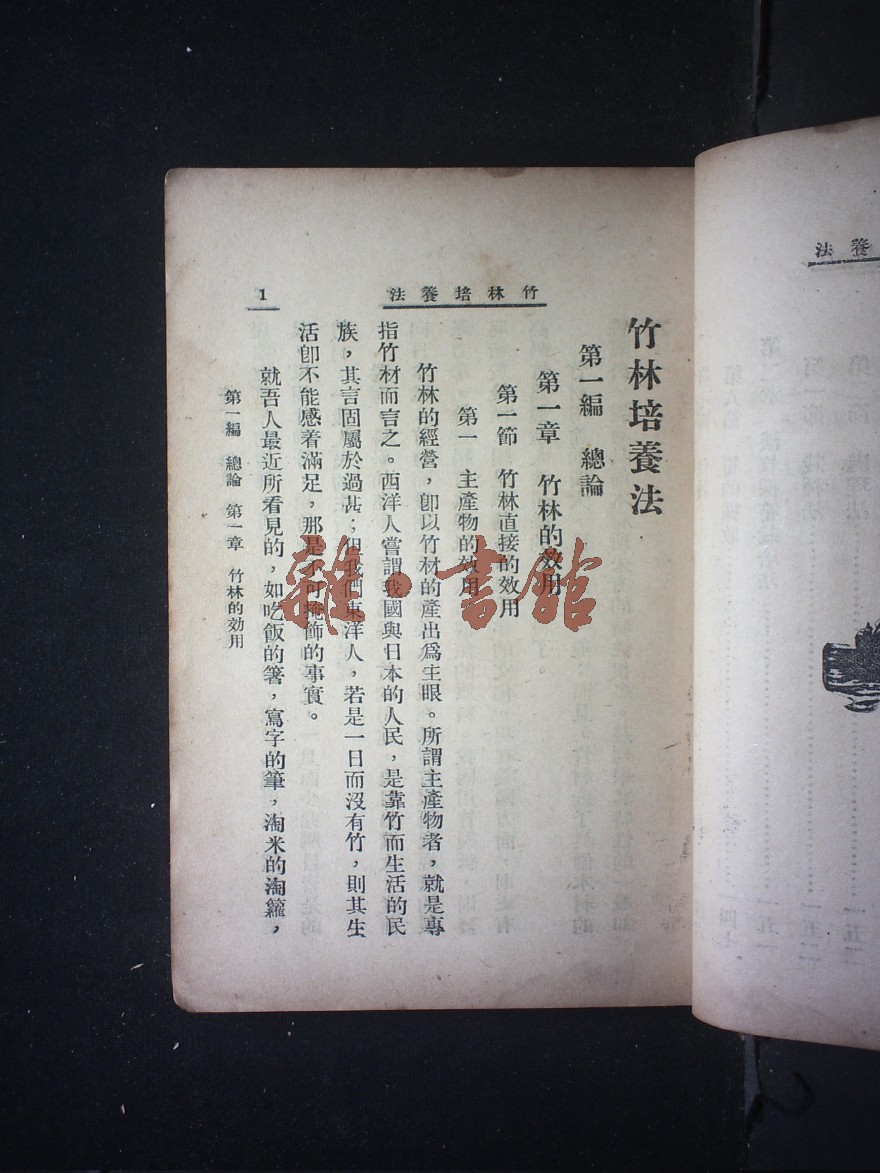 竹林培養法
1
竹林培養法
第一編　總論
第一章　竹林的效用
第一節　竹林直接的效用
第一　主產物的效用
竹林的經營，卽以竹材的產出爲主眼。所謂主產物者，就是專
指竹材而言之。西洋人嘗謂我國與日本的人民，是靠竹而生活的民
族，其言固屬於過甚；但我們東洋人，若是一日而沒有竹，則其生
活卽不能感着滿足，那是不可掩飾的事實。
就吾人最近所看見的，如吃飯的箸，寫字的筆，淘米的淘籮，
第一編　總論　第一章　竹林的効用
雜·書館
養法